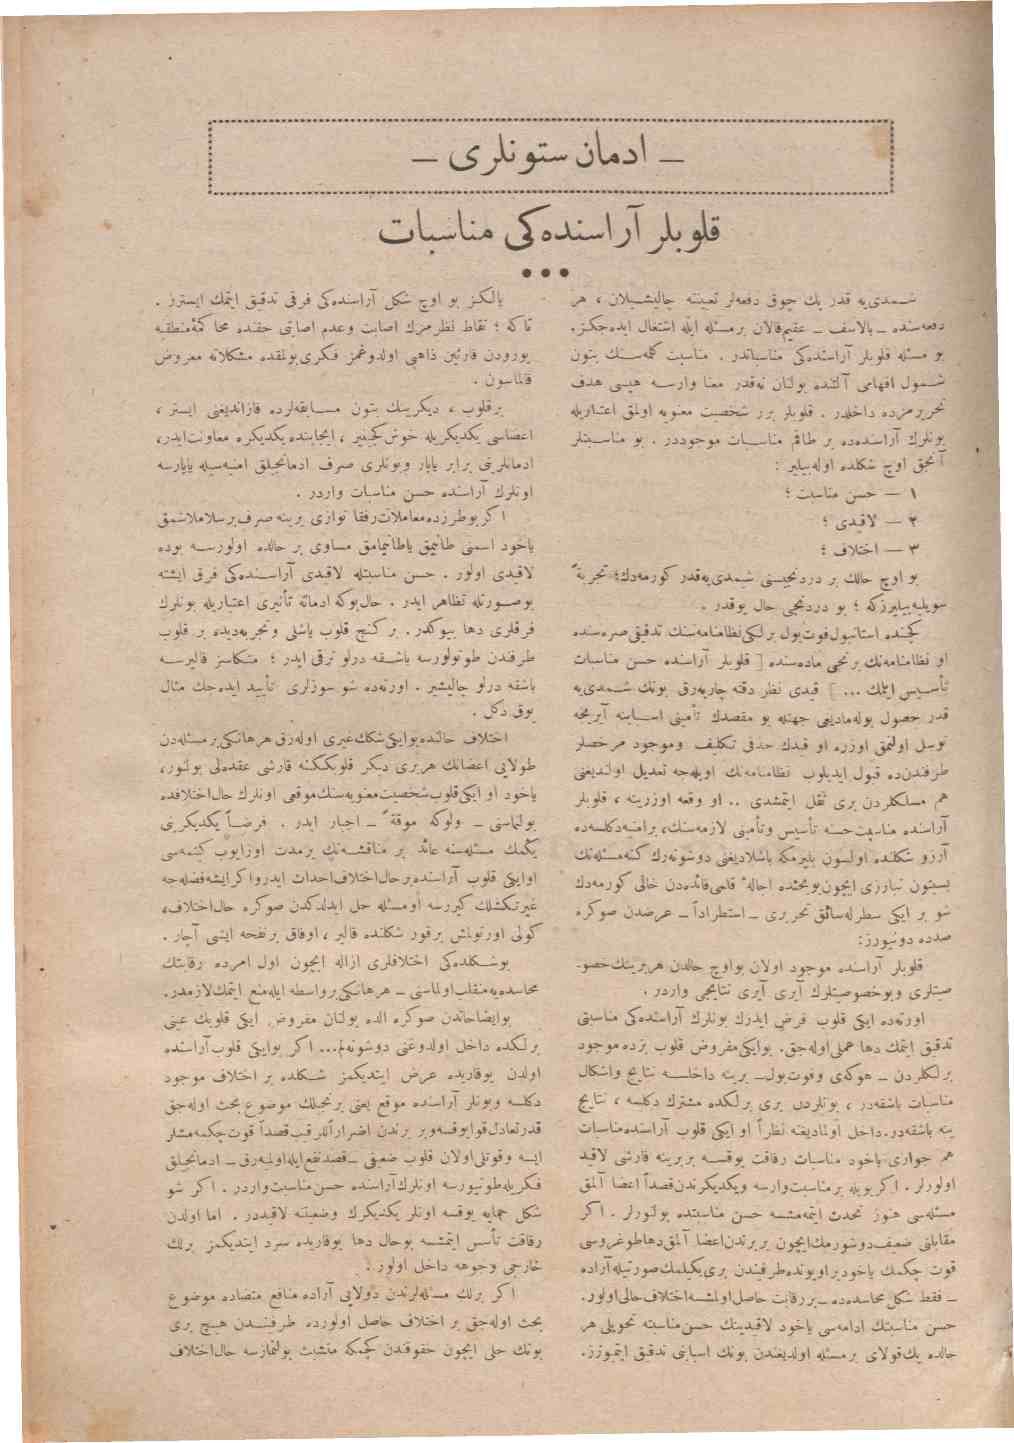 ـ ادمان ستونلری ـ
قلوبلر آراسنده‌کی مناسبات
شـمدی‌یه قدر پك چوق دفعه‌لر تعییننه چالیشـیلان ، هر
دفعه‌سنده ـ بالاسف ـ عقیم قالان بر مسئله ایله اشتغال ایده‌جکز.
بو مسئله قلوبلر آراسنده‌کی مناسباتدر . مناسبت کله‌سـنك بتون
شـمول افهامی آلتنده بولنان نه‌قدر معنا وارسـه هپسی هدف
تحریرمزده داخلدر . قلوبلر برر شخصیت معنویه اولمق اعتباریله
بونلرك آراسنده‌ده بر طاقم مناسـبات موجوددر . بو مناسـبتلر
آنجق اوچ شکلده اوله‌بیلیر :
۱ — حسن مناسبت ؛
۲ — لاقیدی ؛
۳ — اختلاف ؛
بو اوچ حالك بر دردنجیسنی شیمدی‌یه‌قدر کورمه‌دك؛ تجربةً
سویلیه‌بیلیرزکه ؛ بو دردنجی حال یوقدر .
کچنده استانبول فوت‌بول برلکی نظامنامه‌سنك تدقیقی صره‌سنده
او نظامنامه‌نك برنجی ماده‌سنده [ قلوبلر آراسنده حسن مناسبات
تأسـیس ایتمك ... ] قیدی نظر دقته چارپه‌رق بونك شـمدی‌یه
قدر حصول بوله‌مادیغی جهتله بو مقصدك تأمینی اسـبابنه آیریجه
توسل اولنمق اوزره او قیدك حذفی تکلیف وموجود مرخصلر
طرفندن‌ده قبول ایدیلوب نظامنامه‌نك اویله‌جه تعدیل اولندیغنی
هم مسلکلردن بری نقل ایتمشدی .. او وقعه اوزرینه ، قلوبلر
آراسنده مناسبت حسنه تأسیس وتأمینی لازمه‌سنك، برامنیه‌دکلسه‌ده
آرزو شکلنده اولسون بلیرمکه باشلادیغنی دوشونه‌رك کنه‌مسئله‌نك
بسبتون تبارزی ایچون بو بحثده اجالهٔ قلمی فائده‌دن خالی کورمه‌دك
شو بر ایکی سطرله‌سائق تحریری ـ استطراداً ـ عرضدن صوکره
صدده دونیورز:
قلوبلر آراسنده موجود اولان بو اوچ حالدن هربرینك خصو-
صیتلری وبو خصوصیتلرك آیری آیری نتایجی واردر .
اورته‌ده ایکی قلوب فرض ایدرك بونلرك آراسنده‌کی مناسبتی
تدقیق ایتمك دها عملی اوله‌جق. بو ایکی مفروض قلوب بزده موجود
برلکلردن ـ هوکه‌ی وفوت‌بول ـ برینه داخلـسه نتایج واشکال
مناسبات باشقه‌در ، بونلردن بری برلکده مشترك دکلسه ، نتایج
ینه باشقه‌در. داخل اولمادیغنه نظراً او ایکی قلوب آراسنده مناسبات
هم جواری یاخود مناسبات رفاقت یوقسـه بربرینه قارشی لاقید
اولورلر . اکر بویله بر مناسبت وارسه ویکدیکرندن قصداً اعضا آلمق
مسئله‌سی هنوز تحدث ایتمه‌مشسه حسن مناسبتده بولنورلر . اکر
مقابلنی ضعیف دوشورمك ایچون بربرندن اعضا آلمق دها طوغروسی
قوت چکمك یاخود بر اویونده طرفیندن بری یکیلمك صورتیله آراده
ـ فقط شکل محاسده‌ده ـ بر رقابت حاصل اولمشسه اختلاف حالی اولور.
حسن مناسبتك ادامه‌سی یاخود لاقیدینك حسن مناسبته تحویلی هر
حالده پك قولای بر مسئله اولدیغندن بونك اسبابنی تدقیق ایتمیورز.
یالـکـز بو اوچ شکل آراسنده‌کی فرقی تدقیق ایتمك ایسترز .
تاکه ؛ نقاط نظرمزك اصابت وعدم اصابتی حقنده محاکمهٔ منطقیه
یورودن قارئین ذاهبی اولدوغمز فـکری بولمقده مشکلاته معروض
قالماسون .
برقلوب ، دیکرینك بتون مسـابقه‌لرده قازاندیغنی ایستر ،
اعضاسی یکدیکریله خوش کچینیر ، ایجابنده یکدیکره معاونت ایدر،
ادمانلرینی برابر یاپار وبونلری صرف ادمانجیلق امنیه‌سیله یاپارسه
اونلرك آراسنده حسن مناسبات واردر .
اکر بو طرزده معاملات رفقا نوازی یرینه صرف بر سلاملاشمق
یاخود اسمنی طانیمق یا طانیمامق مساوی بر حالده اولورسـه بوده
لاقیدی اولور . حسن مناسبتله لاقیدی آراسـنده‌کی فرق ایشته
بو صـورتله تظاهر ایدر . حال بوکه ادمانه تأثیری اعتباریله بونلرك
فرقلری دها بیوکدر. بر کنج قلوب یاشلی وتجربه‌دیده بر قلوب
طرفندن طوتولورسه باشـقه درلو ترقی ایدر ؛ متـکاسز قالیرسـه
باشقه درلو چالیشیر . اورته‌ده شو سوزلری تأیید ایده‌جك مثال
یوق دکل .
اختلاف حالنده بو ایکی شکلك غیری اوله‌رق هر هانکی بر مسئله‌دن
طولایی اعضانك هربری دیکر قلوبککنه قارشی عقده‌لی بولنور،
یاخود او ایکی قلوب شخصیت معنویه‌سنك موقعی اونلرك حال اختلافده
بولنماسنی ـ ولوکه موقةً ـ اجبار ایدر . فرضـاً یکدیکرینی
یکمك مسئله‌سنه عائد بر مناقشـه‌نك برمدت اوزایوب کیتمه‌سی
او ایکی قلوب آراسنده بر حال اختلاف احداث ایدر واکر ایشه فضله‌جه
غیرتکشلك کیررسه او مسئله حل ایدلدکدن صوکره حال اختلاف،
کولی اورتولمش برقور شکلنده قالیر ، اوفاق برنفحه ایشی آچار .
بو شـکلده‌کی اختلافلری ازاله ایچون اول امرده رقابتك
محاسده‌یه منقلب اولماسنی ـ هر هانکی بر واسطه ایله منع ایتمك لازمدر.
بو ایضاحاتدن صوکره الده بولنان مفروض ایکی قلوبك عینی
برلکده داخل اولدوغنی دوشونه‌لم... اکر بو ایکی قلوب آراسنده
اولدن یوقاریده عرض ایتدیکمز شـکلده بر اختلاف موجود
دکلسه وبونلر آراسنده موقع یعنی برنجیلك موضوع بحث اوله‌جق
قدر تعادل قوا یوقسه وبر برندن اضراراً للرقیب قصداً قوت چکمه‌مشلر
ایسه وقوتلی اولان قلوب ضعیفی ـ قصد نفع ایله اولمیه‌رق ـ ادمانجیلق
فکریله طوتیورسه اونلرك آراسنده حسن مناسبت واردر . اکر شو
شکل حمایه یوقسه اونلر یکدیکرك وضعیتنه لاقیددر . اما اولدن
رفاقت تأسس ایتمشسه بو حال دها یوقاریده سرد ایتدیکمز برلك
خارجی وجوهه داخل اولور .
اکر برلك مسئله‌لرندن دولایی آراده منافع متضاده موضوع
بحث اوله‌جق بر اختلاف حاصل اولورده طرفینـدن هیچ بری
بونك حلی ایچون حقوقندن کچمکه متشبث بولنمازسه حال اختلاف